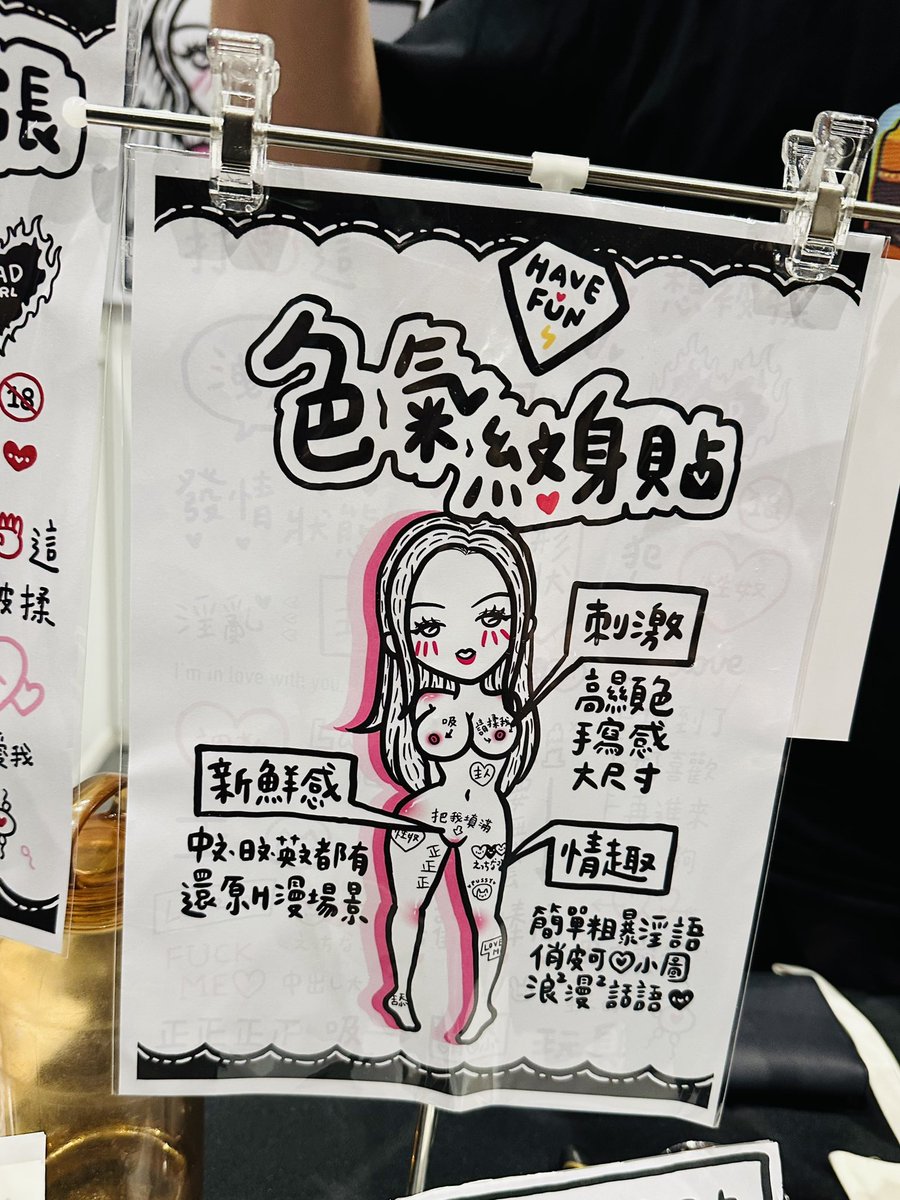 張
HAVE
FUN
色氣紋身貼
18
這
被揉
愛我
發情
淫亂
i'm in love with you
刺激
高顯色
手寫感
大尺寸
吸
請揉我
主人
把我填滿
性奴
正
正
正
PUSSY
LOVE
ME
新鮮感
中文、日文、英文都有
還原H漫場景
情趣
簡單粗暴淫語
俏皮可♡小圖
浪²漫²話語